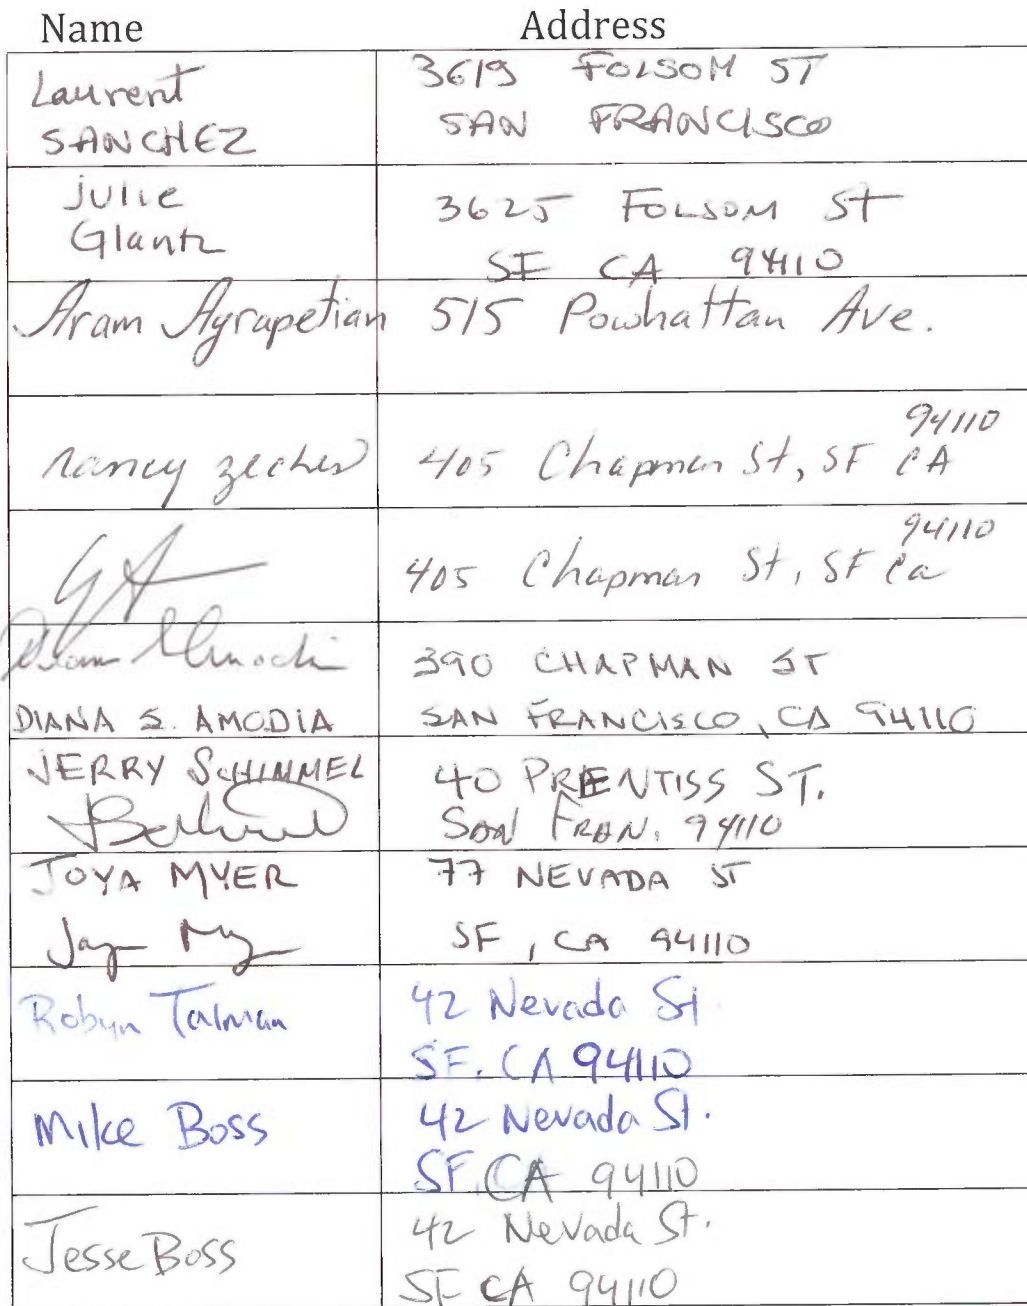 Name Address
Laurent 3619 FOLSOM ST
SANCHEZ SAN FRANCISCO
Julie 3625 FOLSOM St
Glantz SF CA 94110
Aram Ayrapetian 515 Powhattan Ave.
94110
nancy zecher 405 Chapman St, SF CA
94110
405 Chapman St, SF Ca
390 CHAPMAN ST
DIANA S. AMODIA SAN FRANCISCO, CA 94110
JERRY SCHIMMEL 40 PRENTISS ST.
SAN FRAN. 94110
JOYA MYER 77 NEVADA ST
SF, CA 94110
Robyn Talman 42 Nevada St
SF. CA 94110
Mike Boss 42 Nevada St.
SF CA 94110
Jesse Boss 42 Nevada St.
SF CA 94110